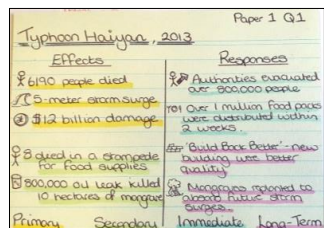 Paper 1 Q1
Typhoon Haiyan, 2013
Effects
6190 people died
5-meter storm surge
$12 billion damage
8 died in a stampede
for food supplies
800,000 oil leak killed
10 hectares of mangrove
Responses
Authorities evacuated
over 800,000 people
Over 1 million food packs
were distributed within
2 weeks.
'Build Back Better' - new
building were better
quality
Mangroves replanted to
absorb future storm
surges.
Primary Secondary Immediate Long-Term